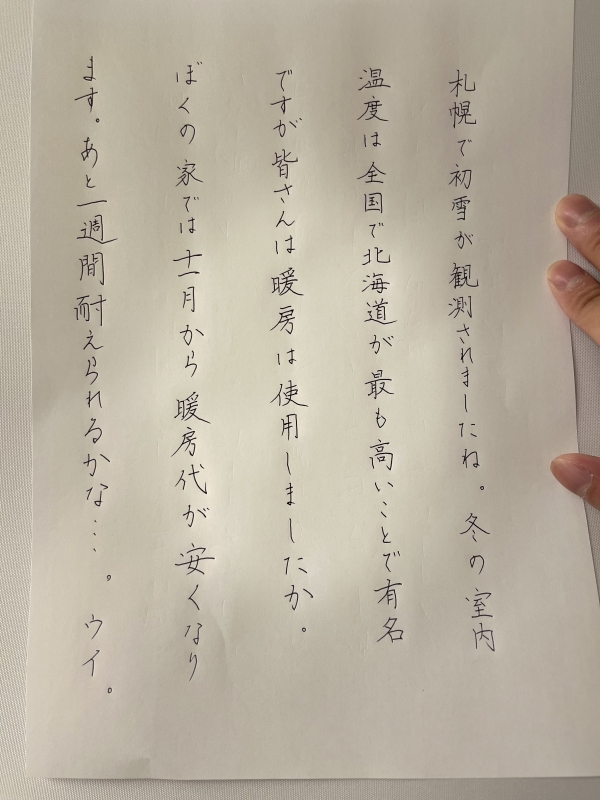 札幌で初雪が観測されましたね。冬の室内
温度は全国で北海道が最も高いことで有名
ですが皆さんは暖房は使用しましたか。
ぼくの家では十一月から暖房代が安くなり
ます。あと一週間耐えられるかな…。ウイ。